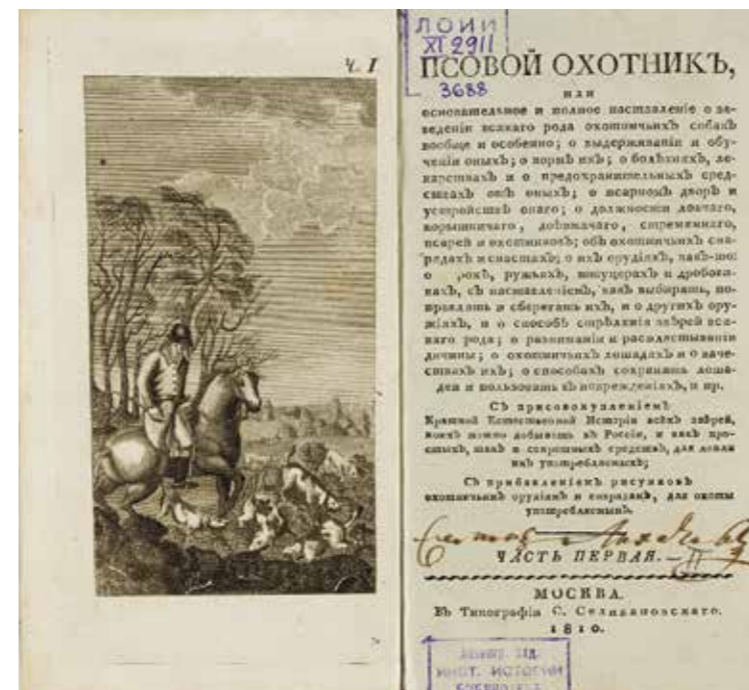 ч. I
ЛОИИ
XI 2911
3688
ПСОВОЙ ОХОТНИКЪ,
или
основательное и полное наставленіе о за-
веденіи всякаго рода охотничьихъ собакъ
вообще и особенно; о выдерживаніи и обу-
ченіи оныхъ; о кормѣ ихъ; о болѣзняхъ, ле-
карствахъ и о предохранительныхъ сред-
ствахъ отъ оныхъ; о псарномъ дворѣ и
устройствѣ онаго; о должности ловчаго,
корытничаго, доѣзжачаго, стремяннаго,
псарей и охотниковъ; объ охотничьихъ сна-
рядахъ и снастяхъ; о ихъ орудіяхъ, какъ-то:
о рохѣ, ружьяхъ, штуцерахъ и дробови-
кахъ, съ наставленіемъ, какъ выбирать, по-
правлять и сберегать ихъ, и о другихъ ору-
жіяхъ, и о способѣ стрѣлянія звѣрей вся-
каго рода; о разниманіи и распластываніи
дичины; о охотничьихъ лошадяхъ и о каче-
ствахъ ихъ; о способахъ сохранять лоша-
дей и пользовать въ поврежденіяхъ, и пр.
Съ присовокупленіемъ
Краткой Естественной Исторіи всѣхъ звѣрей,
коихъ можно добывать въ Россіи, и какъ про-
стыхъ, такъ и секретныхъ средствъ, для ловли
ихъ употребляемыхъ;
Съ прибавленіемъ рисунковъ
охотничьимъ орудіямъ и снарядамъ, для охоты
употребляемымъ.
ЧАСТЬ ПЕРВАЯ. — II
МОСКВА.
Въ Типографіи С. Селивановскаго.
1810.
ИНСТ. ИСТОРИИ
БИБЛИОТЕКА